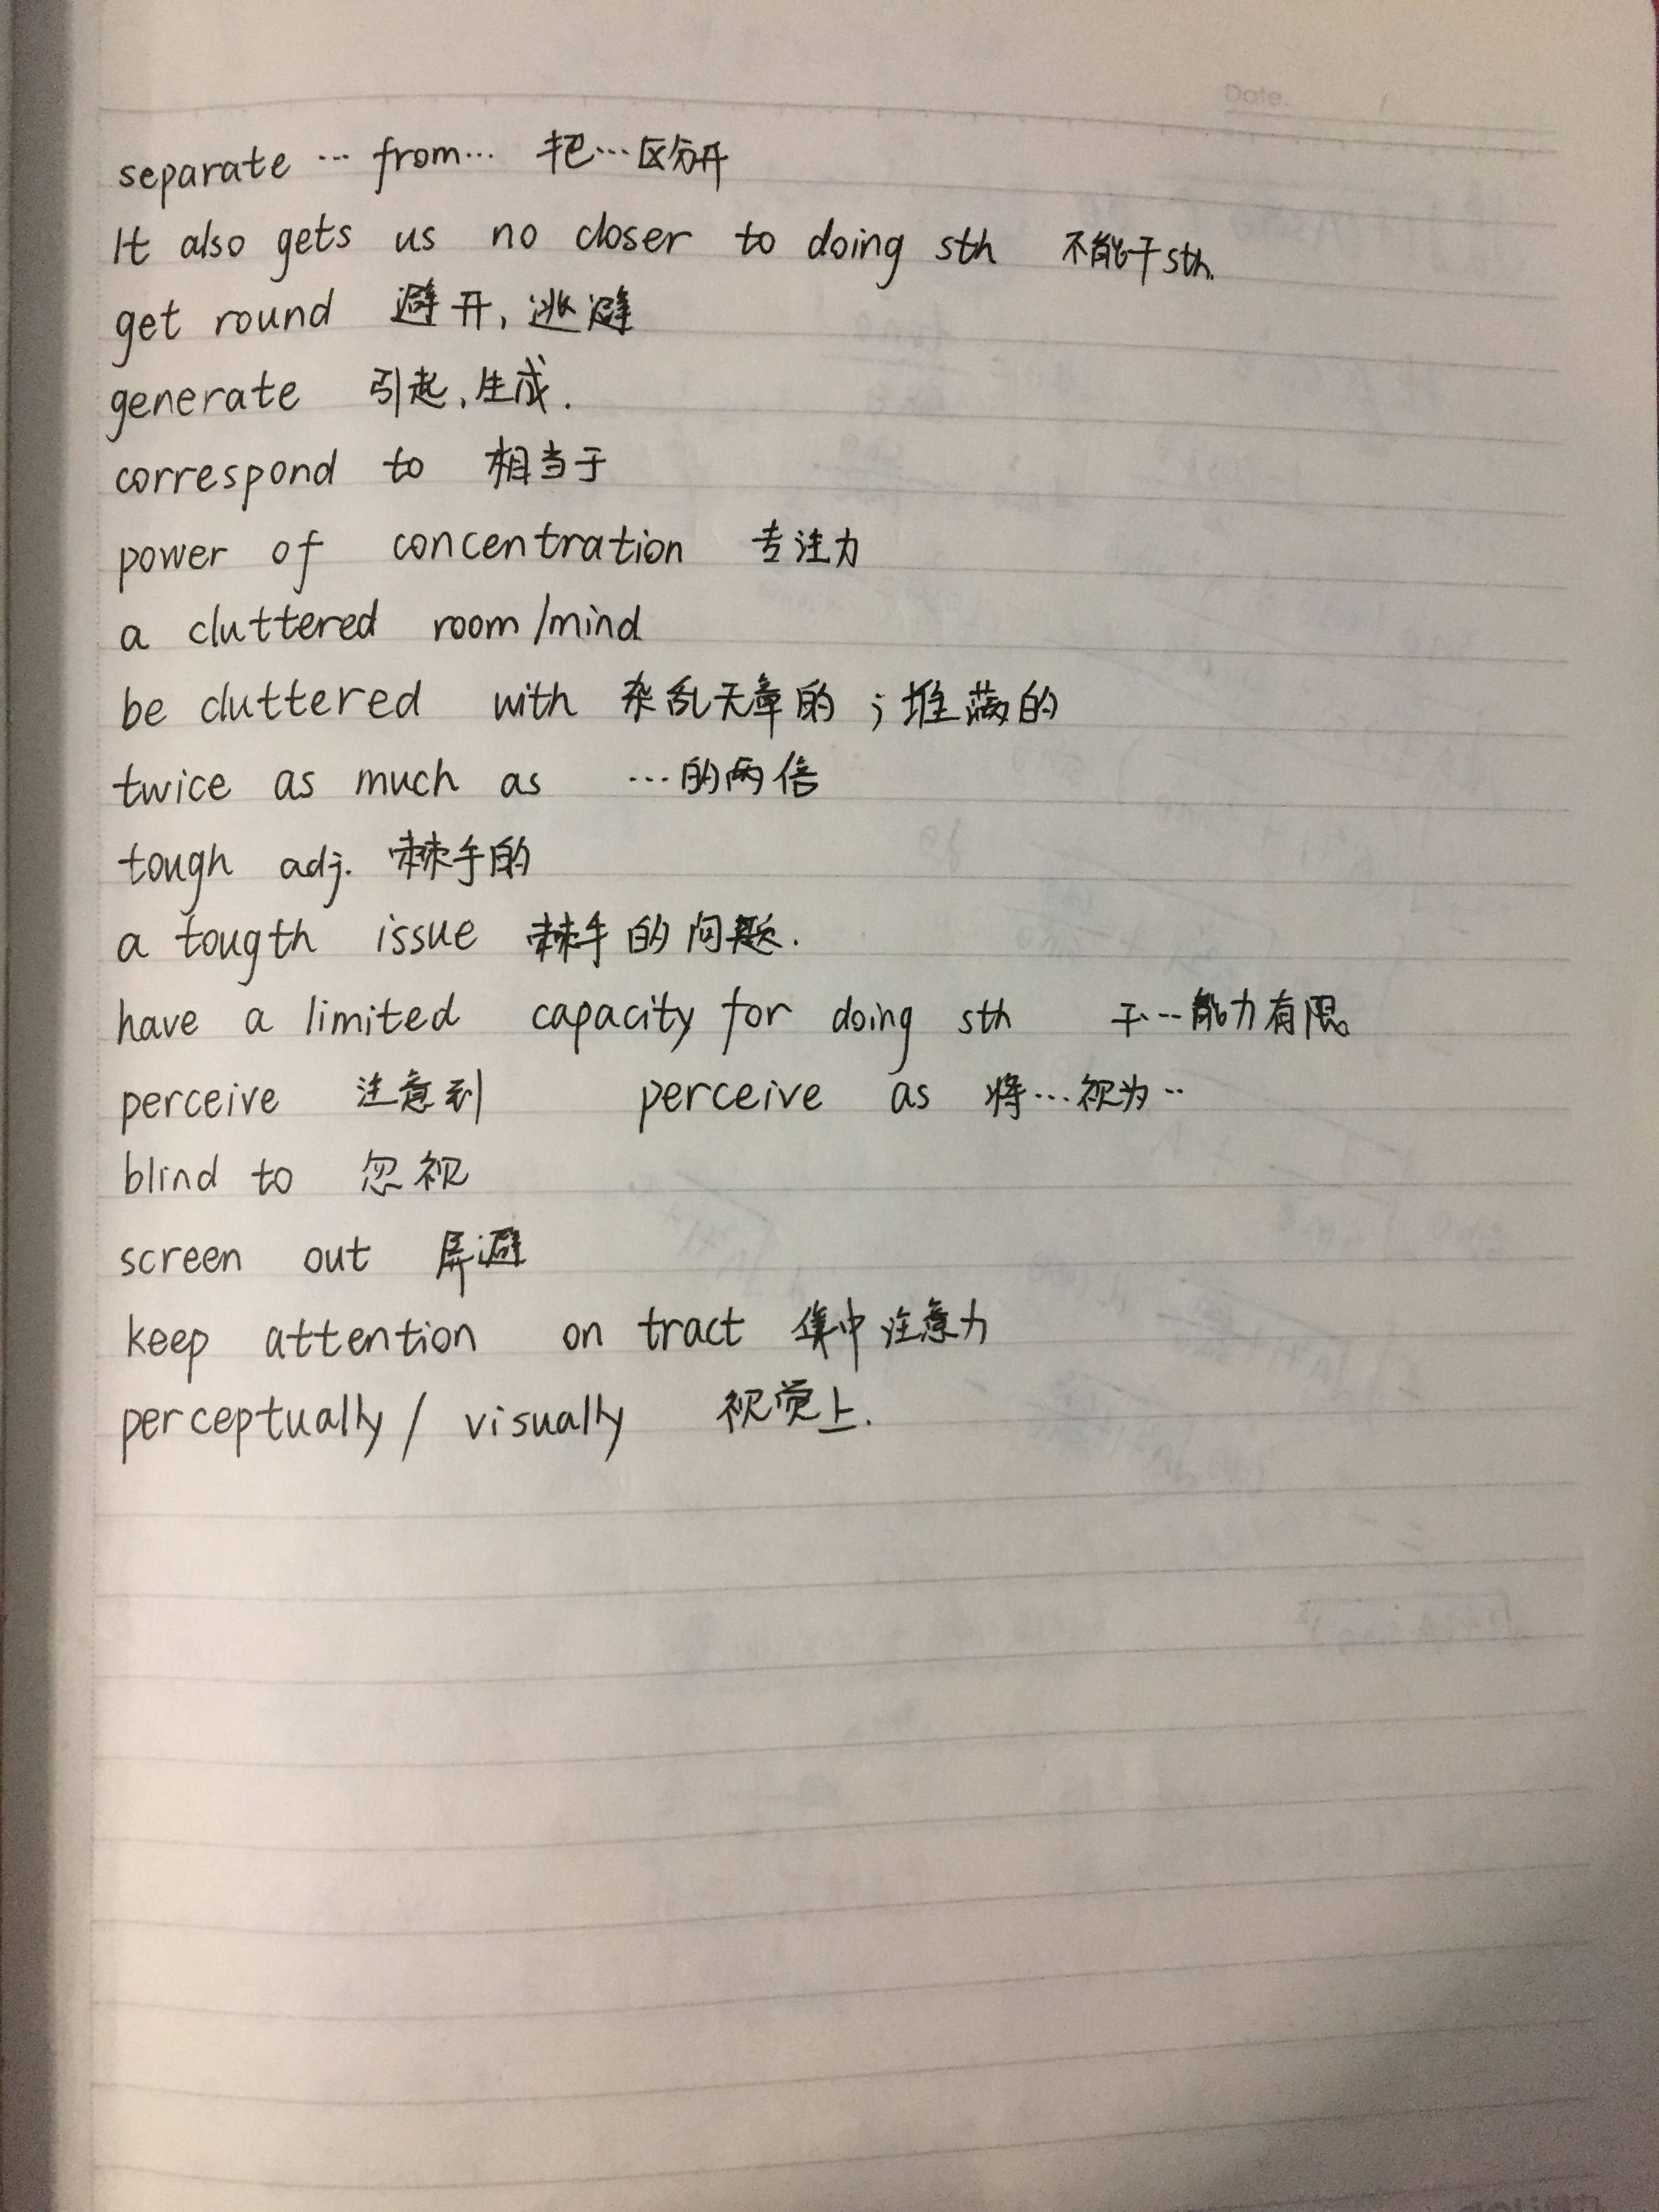 Date.
separate … from… 把…区分开
It also gets us no closer to doing sth 不能干sth.
get round 避开, 逃避
generate 引起, 生成.
correspond to 相当于
power of concentration 专注力
a cluttered room/mind
be cluttered with 杂乱无章的 ; 堆满的
twice as much as …的两倍
tough adj. 棘手的
a tougth issue 棘手的问题.
have a limited capacity for doing sth 干…能力有限。
perceive 注意到 perceive as 将…视为…
blind to 忽视
screen out 屏避
keep attention on tract 集中注意力
perceptually / visually 视觉上.